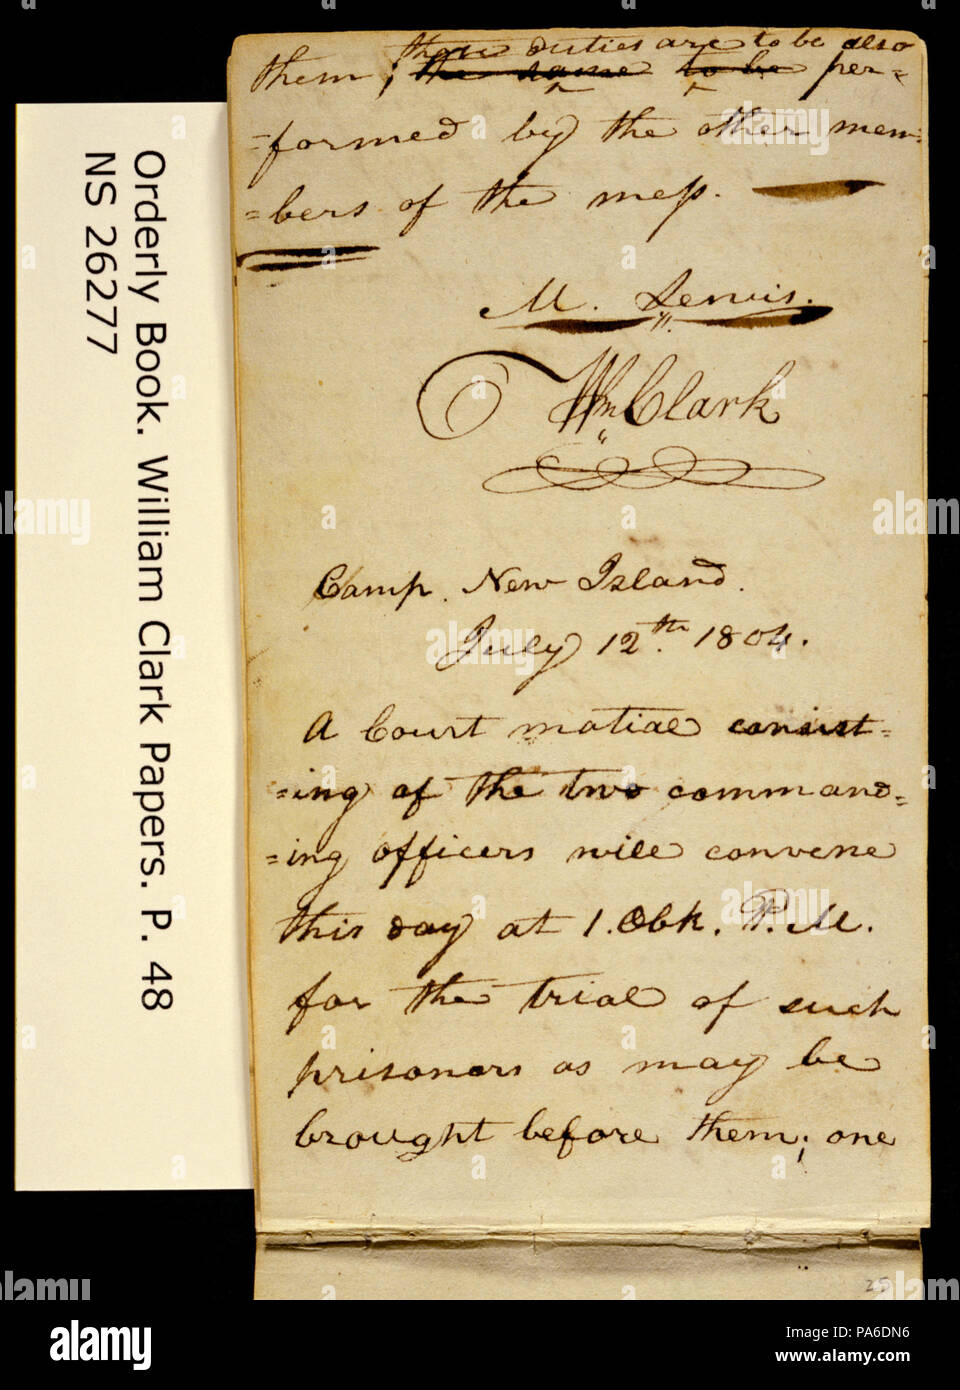 those duties are to be also
them, the same to be per-
=formed by the other mem=
=bers of the mess.
M. Lewis.
Wm Clark
Camp. New Island.
July 12th. 1804.
A Court matial consist=
=ing of the two command=
=ing officers will convene
this day at 1. OCk. P.M.
for the trial of such
prisoners as may be
brought before them; one
25
Orderly Book. William Clark Papers. P. 48
NS 26277
alamy
Image ID: PA6DN6
www.alamy.com